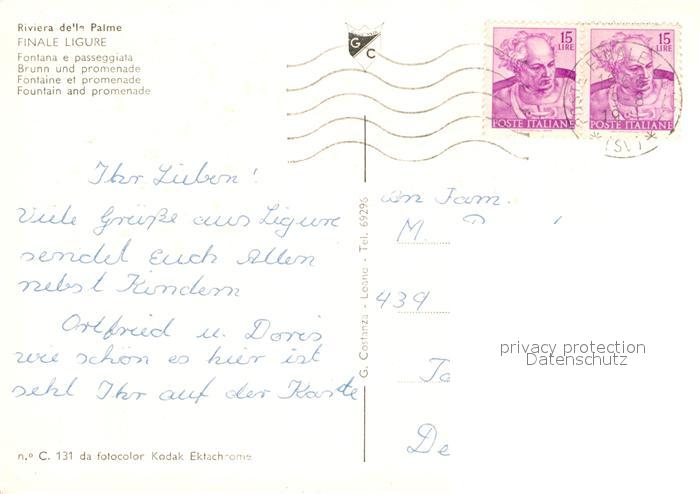 Riviera delle Palme
FINALE LIGURE
Fontana e passeggiata
Brunn und promenade
Fontaine et promenade
Fountain and promenade
G C
15 LIRE
15 LIRE
POSTE ITALIANE
POSTE ITALIANE
(SV)
Ihr Lieben!
Viele Grüße aus Ligure
sendet Euch Allen
nebst Kindern
Ortfried u. Doris
wie schön es hier ist
seht Ihr auf der Karte
G. Costanza - Loano - Tel. 69296
an Fam.
M.
439
De
privacy protection
Datenschutz
n.º C. 131 da fotocolor Kodak Ektachrome